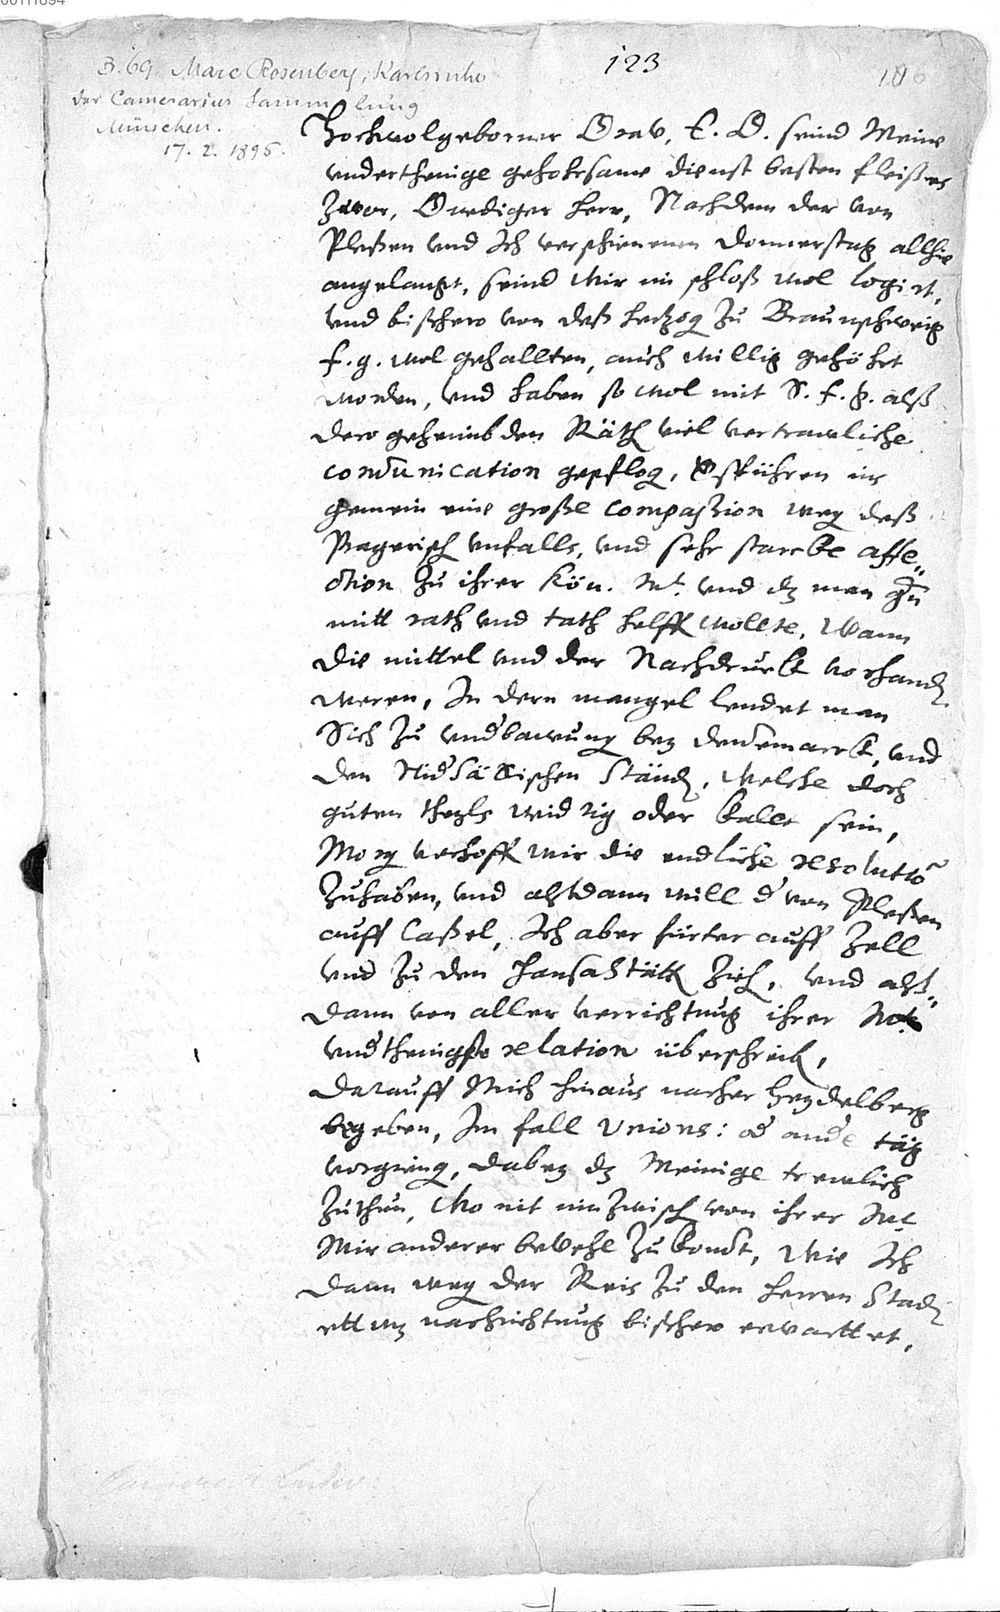 00111894
123
106
Z. 69. Marc Rosenberg, Karlsruhe
der Camerarius Sammlung
München.
17. 2. 1896.
Hochwolgeborner Grav, E. G. seind Meine
underthenige gehorsame dienst besten fleißes
zuvor, Gnediger herr, Nachdem der von
Pleßen und Ich verschienenen donnerstag allhie
angelangt, seind Wir im schloß wol logirt,
und bischero von deß herzog zu Braunschweig
f. g. wol gehallten, auch willig gehöret
worden, und haben so wol mit S. f. g. alß
dero geheimbden Räth viel vertrawliche
com̄unication gepflog, spühren in
gemein eine große compassion weg deß
Pragerisch unfalls, und sehr starcke affe„
ction zu ihrer Kön. Mt. und dz man gn̄
mitt rath und tath helff wollte, Wann
die mittel und der Nachdruck vorhand
weren, In dern mangel lendet man
Sich zu undbawung bey dennemarck, und
den Nidsäxischen Ständ, Welche doch
guten theyls widrig oder kallt sein,
Morg verhoff wir die endliche resolutiō
zuhaben, und alßdann will d von Pleßen
auff Caßel, Ich aber fürter auff Zell
und zu den Hansastätt zieh, und alß„
dann von aller verrichtung ihrer Mt.
undthenigste relation überschick,
Darauff Mich hinaus nacher Heydelberg
begeben, Im fall Unions: od and täg
vorgieng, dabey dz Meinige trewlich
zuthun, Wo nit inzwisch von ihrer Mt
Mir anderer bevehl zukomt, Wie Ich
dann weg der Reis zu den herren Stad
ettwz nachrichtung bischero erwarttet,